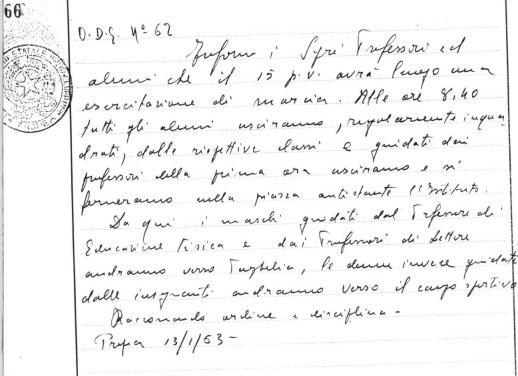 66
O.D.G. Nº 62
Informo i Sigri Professori ed
alunni che il 15 p.v. avrà luogo una
esercitazione di marcia. Alle ore 8,40
tutti gli alunni usciranno, regolarmente inqua
drati, dalle rispettive classi e guidati dai
professori della prima ora usciranno e si
fermeranno nella piazza antistante l'Istituto.
Da qui i maschi guidati dal Professore di
Educazione Fisica e dai Professori di Lettere
andranno verso le donne invece guidate
dalle insegnanti andranno verso il campo sportivo
Raccomando ordine e disciplina -
13/1/53 -